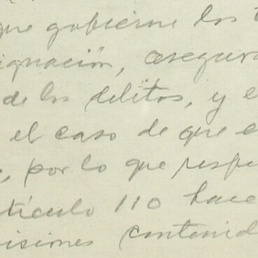 que gobierne los
ignación, asegura
de los delitos, y e
el caso de que e
, por lo que respe
tículo 110 hace
isiones contenid